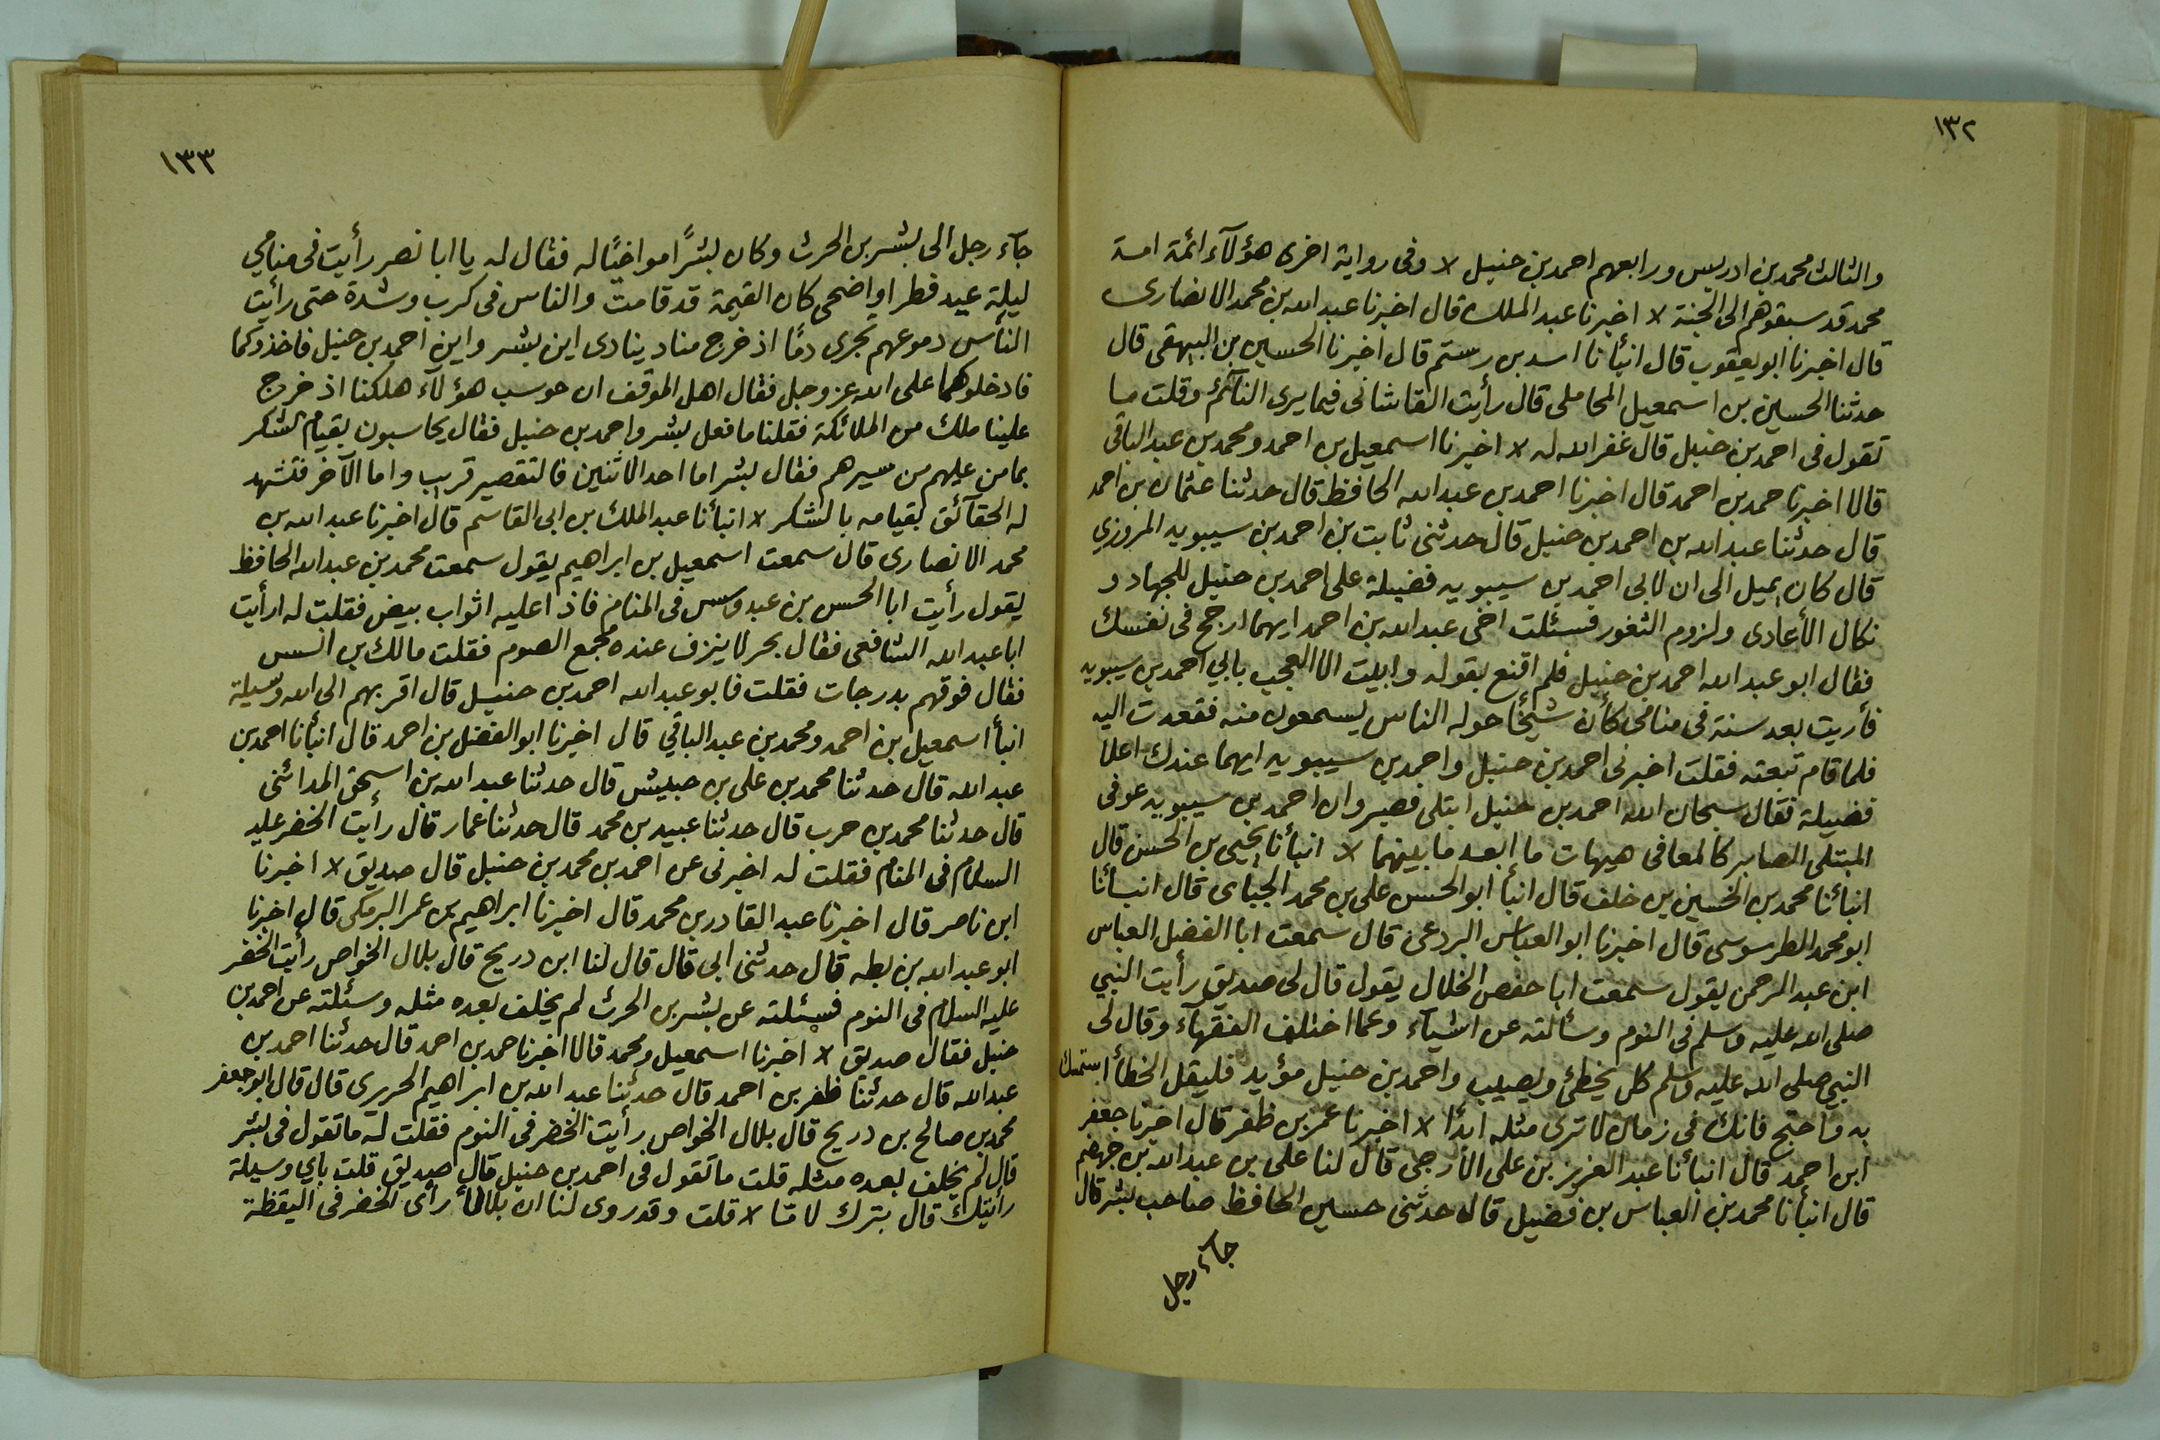 ١٣٢
والثالث محمد بن ادريس ورابعهم احمد بن حنبل لا وفى رواية اخرى هؤلآء ائمة امة
محمد قد سبقوهم الى الجنة لا اخبرنا عبد الملك قال اخبرنا عبد الله بن محمد الانصارى
قال اخبرنا ابو يعقوب قال انبأنا اسد بن رستم قال اخبرنا الحسين بن البيهقى قال
حدثنا الحسين بن اسمعيل المحاملى قال رأيت القاشانى فيما يرى النآئم وقلت ما
تقول فى احمد بن حنبل قال غفر الله له لا اخبرنا اسمعيل بن احمد ومحمد بن عبد الباقى
قالا اخبرنا حمد بن احمد قال اخبرنا احمد بن عبد الله الحافظ قال حدثنا عثمان بن احمد
قال حدثنا عبد الله بن احمد بن حنبل قال حدثنى ثابت بن احمد بن سيبويه المروزي
قال كان يميل الى ان لابى احمد بن سيبويه فضيلة على احمد بن حنبل للجهاد و
نكال الأعادى ولزوم الثغور فسئلت اخى عبد الله بن احمد ايهما ارجح فى نفسك
فقال ابو عبد الله احمد بن حنبل فلم اقنع بقوله وابيت الا العجب بابي احمد بن سيبويه
فأريت بعد سنة فى منامى كأن شيخا حوله الناس يسمعون منه فقعدت اليه
فلما قام تبعته فقلت اخبرنى احمد بن حنبل واحمد بن سيبويه ايهما عندك اعلا
فضيلة فقال سبحان الله احمد بن حنبل ابتلى فصبر وان احمد بن سيبويه عوفى
المبتلى الصابر كالمعافى هيهات ما ابعد ما بينهما لا انبأنا يحيى بن الحسن قال
انبائنا محمد بن الحسين بن خلف قال انبأ ابو الحسن على بن محمد الجباى قال انبأنا
ابو محمد الطرسوسى قال اخبرنا ابو العباس البردعى قال سمعت ابا الفضل العباس
ابن عبد الرحمن يقول سمعت ابا حفص الخلال يقول قال لى صديق رأيت النبي
صلى الله عليه وسلم فى النوم وسألته عن اشيآء وعما اختلف الفقهآء وقال لى
النبي صلى الله عليه وسلم كل يخطئ ويصيب واحمد بن حنبل مؤيد فليقل الخطأ استمسك
به واحتج فانك فى زمان لا ترى مثله ابدًا لا اخبرنا عمر بن ظفر قال اخبرنا جعفر
ابن احمد قال انبأنا عبد العزيز بن على الأزجى قال لنا على بن عبد الله بن جهضم
قال انبأنا محمد بن العباس بن فضيل قال حدثنى حسين الحافظ صاحب بشر قال
جآء رجل
١٣٣
جآء رجل الى بشر بن الحرث وكان بشرًا مواخيًا له فقال له يا ابا نصر رأيت فى منامي
ليلة عيد فطر او اضحى كان القيمة قد قامت والناس فى كرب وشدة حتى رأيت
الناس دموعهم تجرى دمًا اذ خرج مناد ينادى اين بشر واين احمد بن حنبل فاخذوكما
فادخلوكما على الله عز وجل فقال اهل الموقف ان حوسب هؤلآء هلكنا اذ خرج
علينا ملك من الملائكة فقلنا ما فعل بشر واحمد بن حنبل فقال يحاسبون بقيام الشكر
بما من عليهم من سيرهم فقال بشر اما احد الاثنين فالتقصير قريب واما الآخر فتشهد
له الحقآئق بقيامه بالشكر لا انبأنا عبد الملك بن ابى القاسم قال اخبرنا عبد الله بن
محمد الانصارى قال سمعت اسمعيل بن ابراهيم يقول سمعت محمد بن عبد الله الحافظ
يقول رأيت ابا الحسن بن عبدوس فى المنام فاذا عليه اثواب بيض فقلت له ارأيت
ابا عبد الله الشافعى فقال بحر لا ينزف عنده مجمع الصوم فقلت مالك بن انس
فقال فوقهم بدرجات فقلت فابو عبد الله احمد بن حنبل قال اقربهم الى الله وسيلة
انبأ اسمعيل بن احمد ومحمد بن عبد الباقي قال اخبرنا ابو الفضل بن احمد قال انبأنا احمد بن
عبد الله قال حدثنا محمد بن على بن حبيش قال حدثنا عبد الله بن اسحق المدائنى
قال حدثنا محمد بن حرب قال حدثنا عبيد بن محمد قال حدثنا عمار قال رأيت الخضر عليه
السلام فى المنام فقلت له اخبرنى عن احمد بن محمد بن حنبل قال صديق لا اخبرنا
ابن ناصر قال اخبرنا عبد القادر بن محمد قال اخبرنا ابراهيم بن عمر البرمكى قال اخبرنا
ابو عبد الله بن بطه قال حدثنى ابى قال قال لنا ابن دريح قال بلال الخواص رأيت الخضر
عليه السلام فى النوم فسئلته عن بشر بن الحرث لم يخلف بعده مثله وسئلته عن احمد بن
حنبل فقال صديق لا اخبرنا اسمعيل ومحمد قالا اخبرنا حمد بن احمد قال حدثنا احمد بن
عبد الله قال حدثنا ظفر بن احمد قال حدثنا عبد الله بن ابراهيم الحريرى قال قال ابو جعفر
محمد بن صالح بن دريح قال بلال الخواص رأيت الخضر فى النوم فقلت له ما تقول فى بشر
قال لم يخلف بعده مثله قلت ما تقول فى احمد بن حنبل قال صديق قلت باي وسيلة
رأيتك قال ببرك لامنا لا قلت وقد روى لنا ان بلالا رأى الخضر فى اليقظة